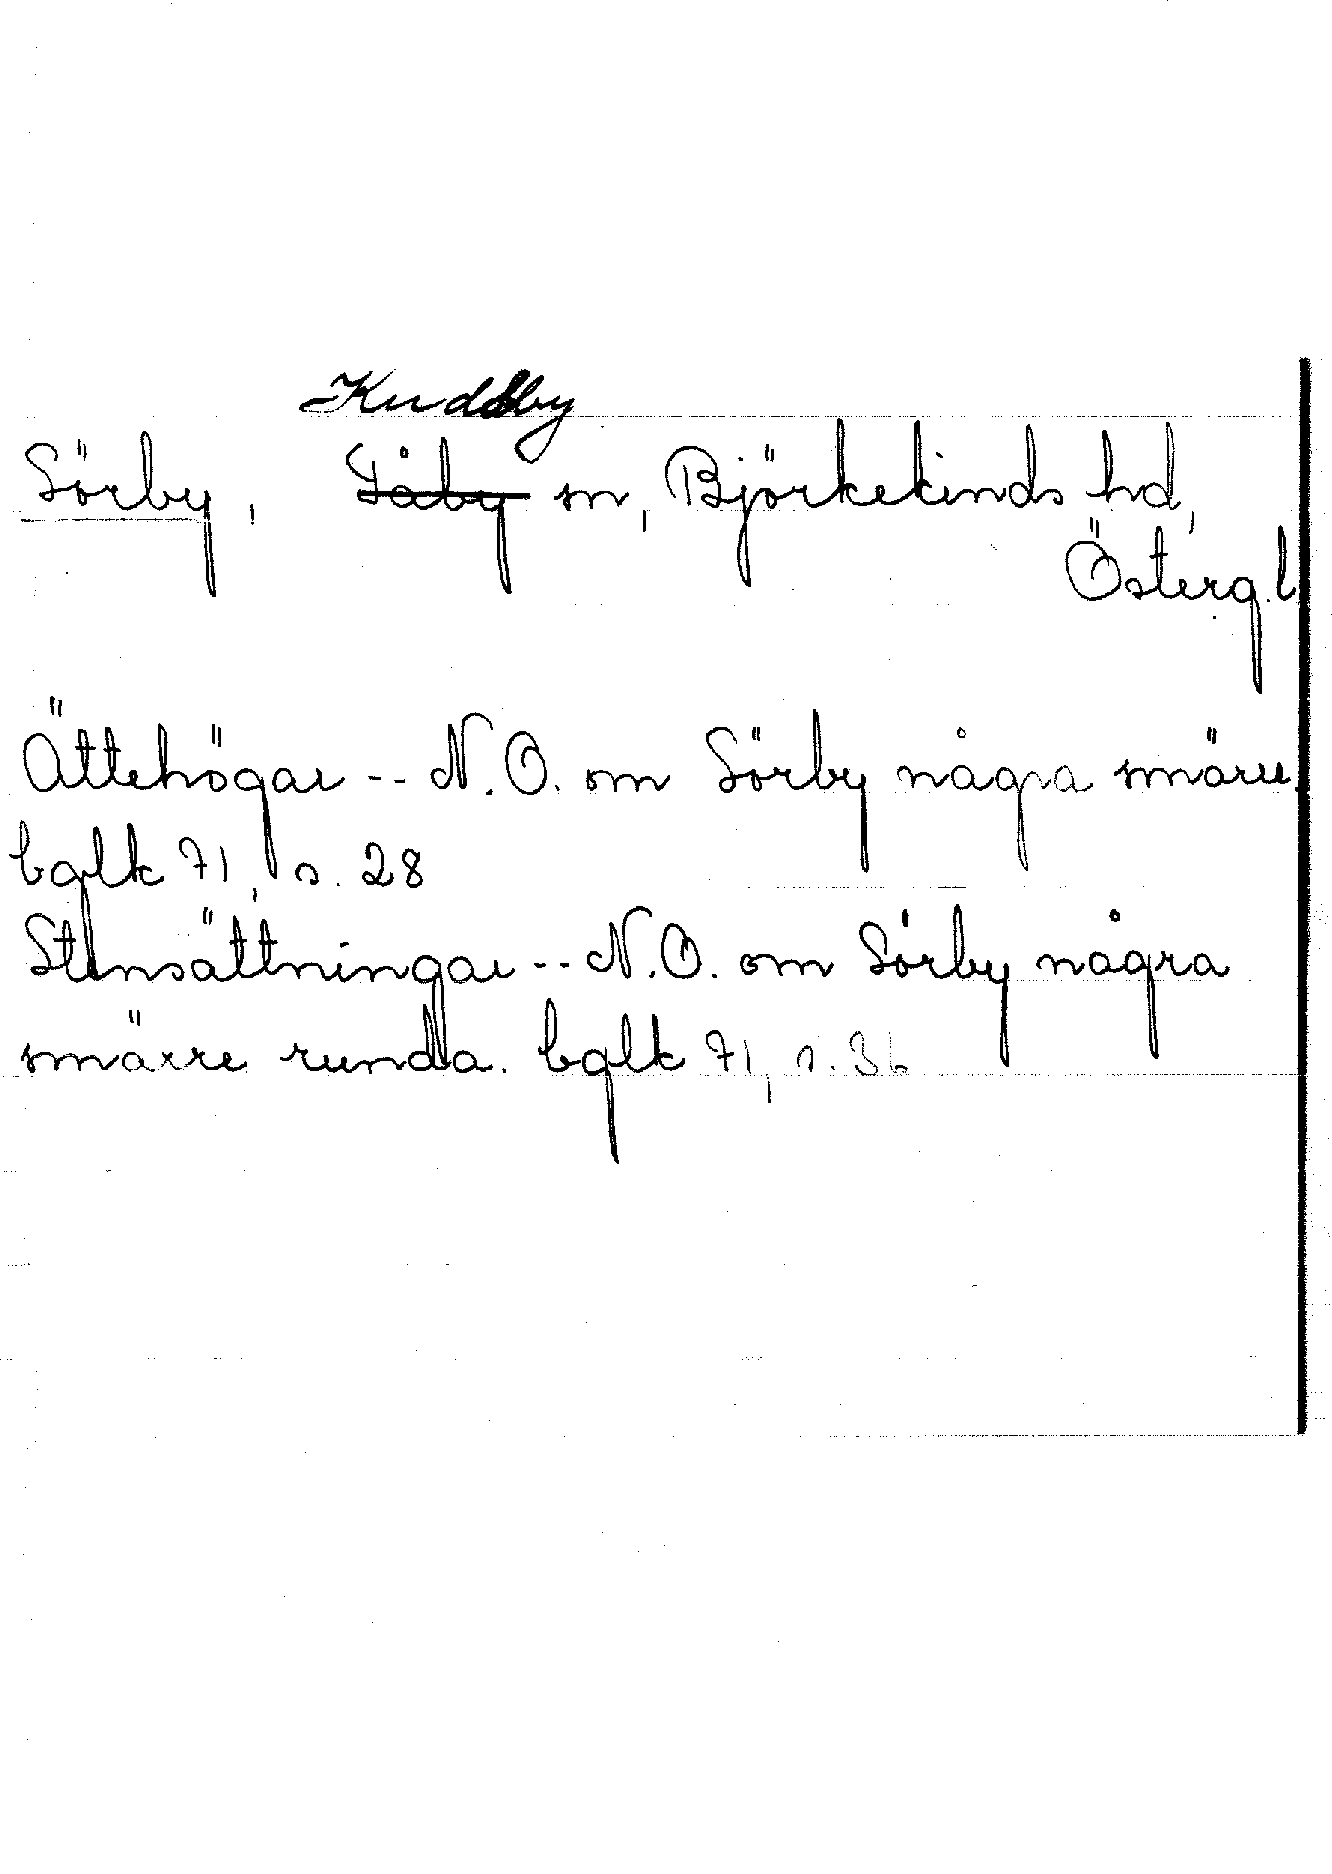 Kuddby
Sörby, Tåby sn, Björkekinds hd,
Östergl
Ättehögar -- N.O. om Sörby några smärre.
bglk 71, s. 28
Stensättningar -- N.O. om Sörby några
smärre runda. bglk 71, s. 36